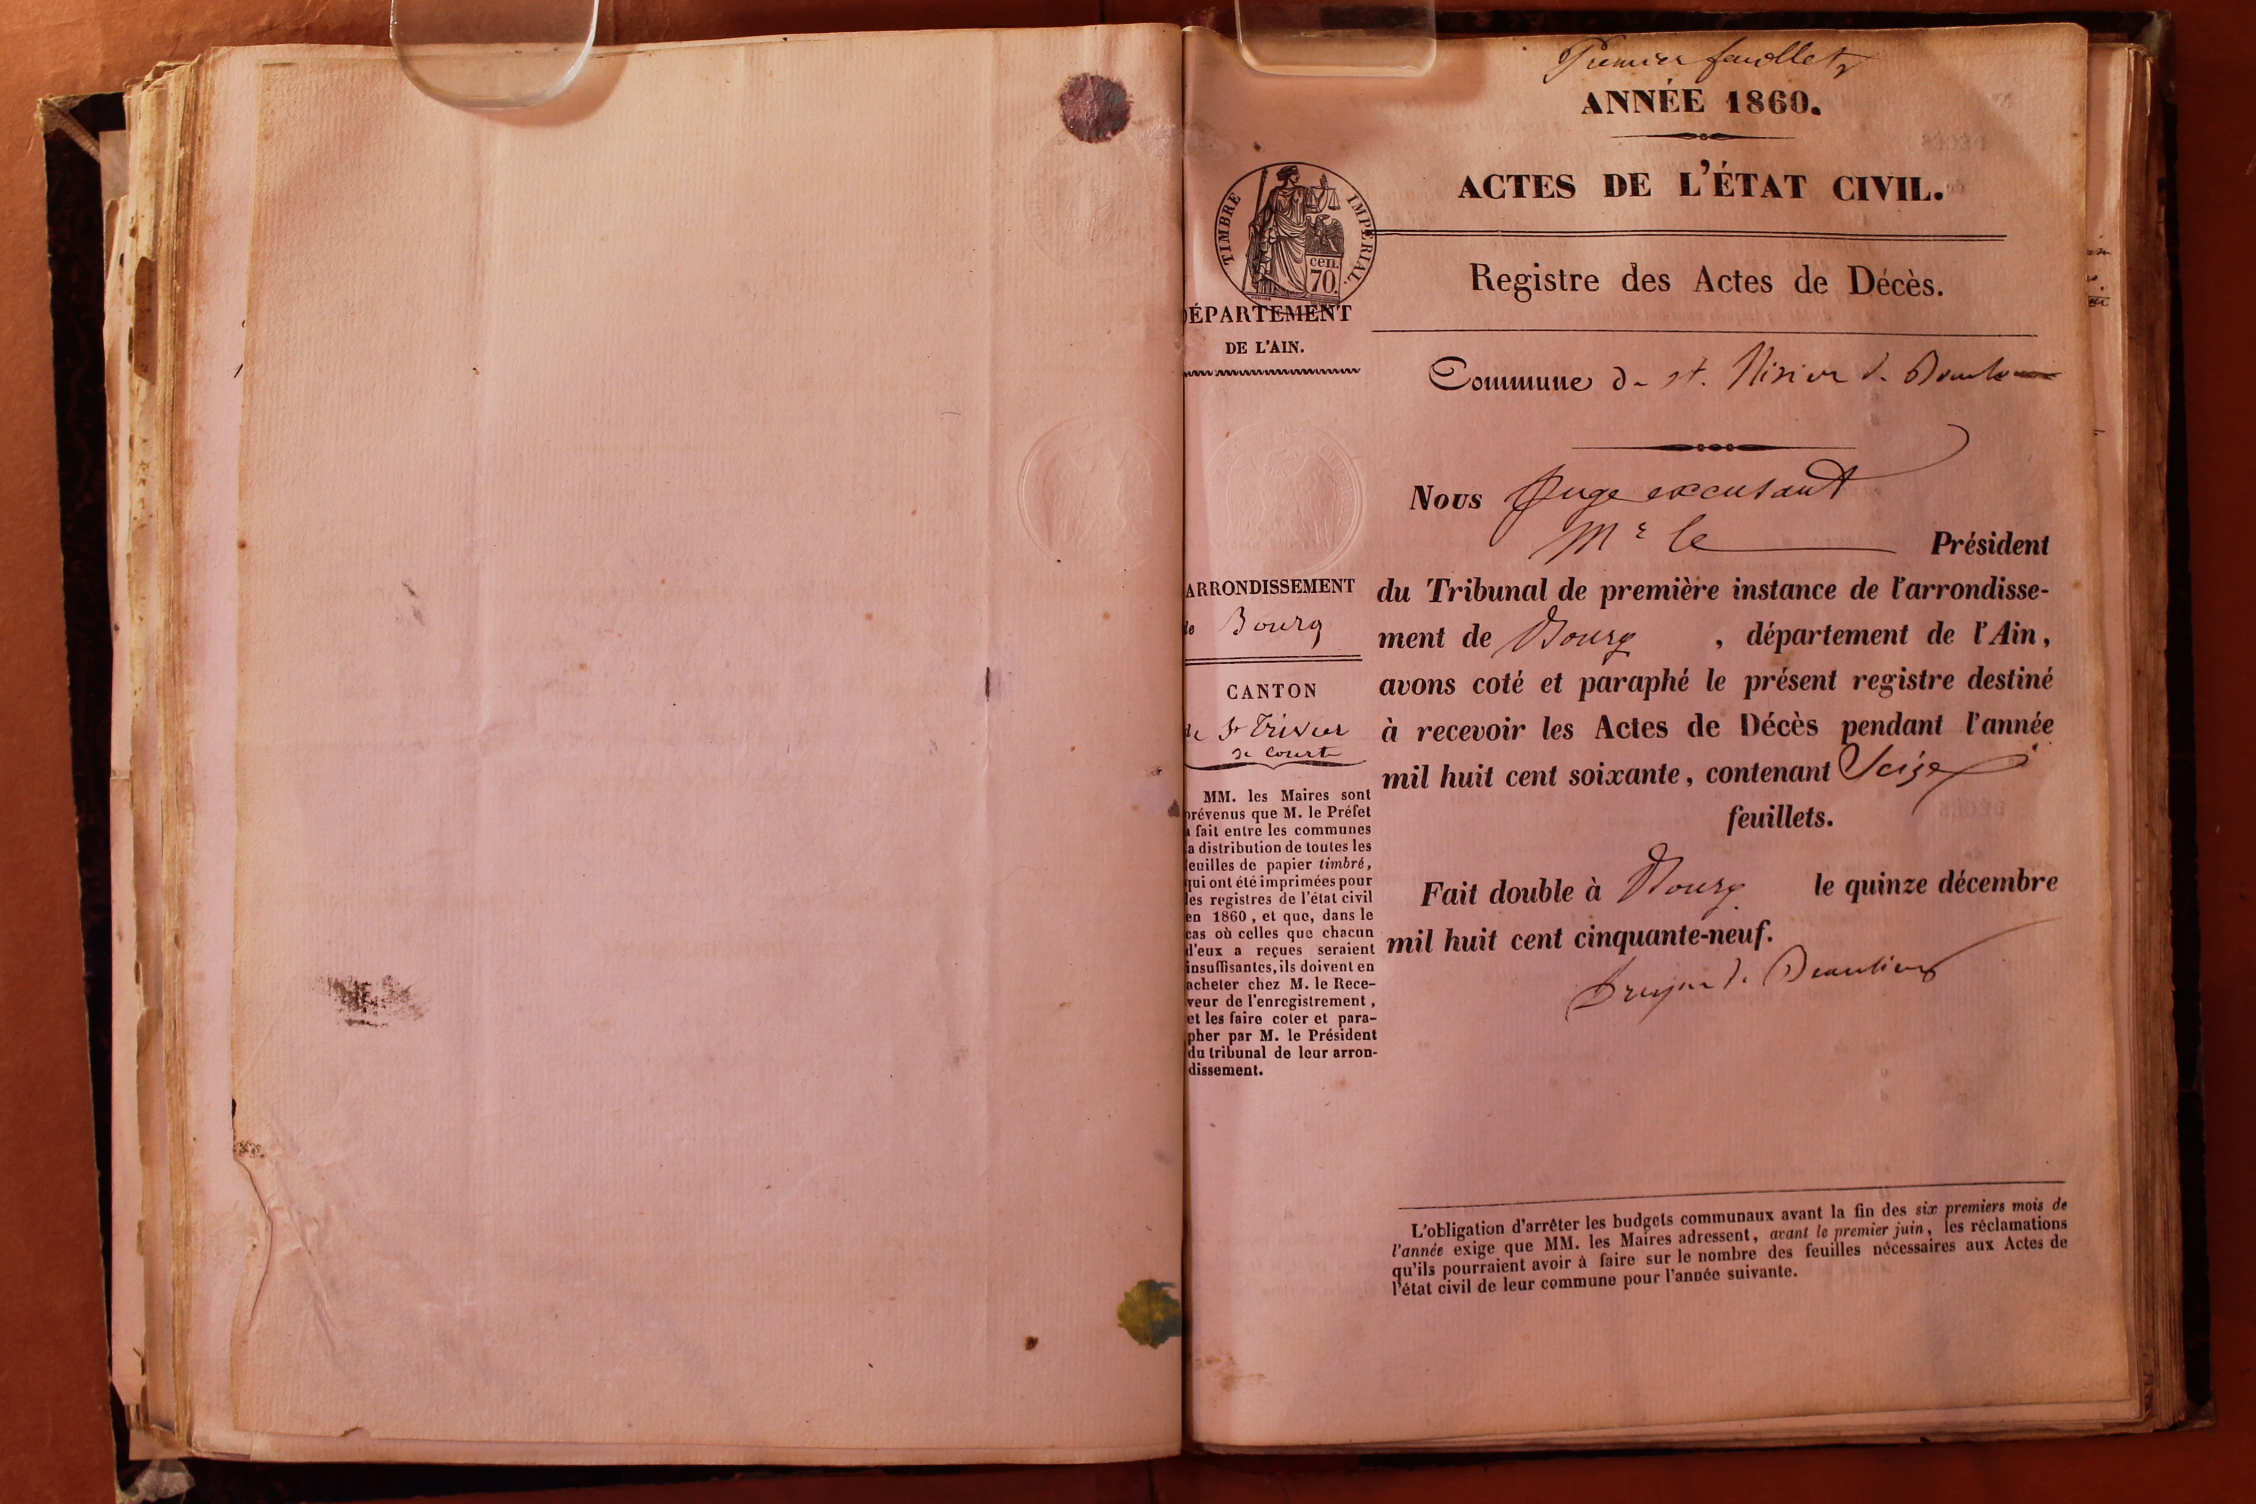 Premier feuillet
ANNÉE 1860.
ACTES DE L'ÉTAT CIVIL.
TIMBRE IMPÉRIAL.
cen.
70.
Registre des Actes de Décès.
DÉPARTEMENT
DE L'AIN.
Commune de st. Nizier le Bouchoux
Nous Juge excusant
Mr le Président
du Tribunal de première instance de l'arrondisse-
ment de Bourg, département de l'Ain,
avons coté et paraphé le présent registre destiné
à recevoir les Actes de Décès pendant l'année
mil huit cent soixante, contenant Seize
feuillets.
Fait double à Bourg le quinze décembre
mil huit cent cinquante-neuf.
ARRONDISSEMENT
de Bourg
CANTON
de St Trivier
de Courte
MM. les Maires sont
prévenus que M. le Préfet
a fait entre les communes
la distribution de toutes les
feuilles de papier timbré,
qui ont été imprimées pour
les registres de l'état civil
en 1860, et que, dans le
cas où celles que chacun
d'eux a reçues seraient
insuffisantes, ils doivent en
acheter chez M. le Rece-
veur de l'enregistrement,
et les faire coter et para-
pher par M. le Président
du tribunal de leur arron-
dissement.
L'obligation d'arrêter les budgets communaux avant la fin des six premiers mois de
l'année exige que MM. les Maires adressent, avant le premier juin, les réclamations
qu'ils pourraient avoir à faire sur le nombre des feuilles nécessaires aux Actes de
l'état civil de leur commune pour l'année suivante.